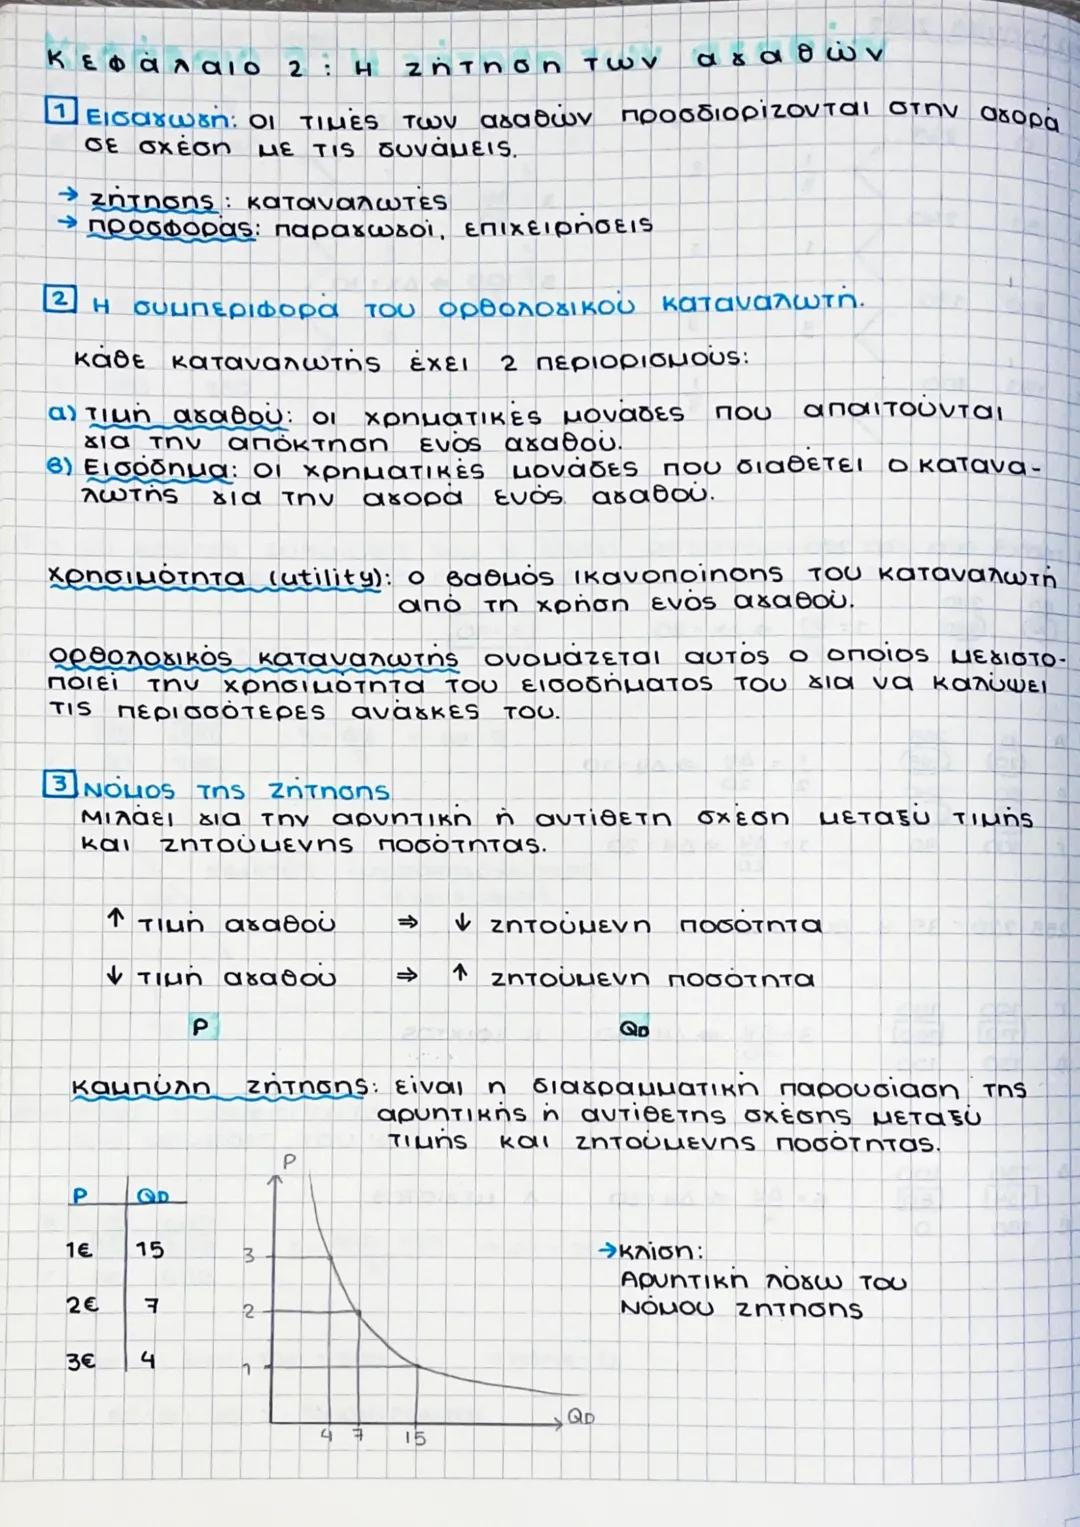 Κεφάλαιο 2: Η ζήτηση των αγαθών
1 Εισαγωγή: οι τιμές των αγαθών προσδιορίζονται στην αγορά
σε σχέση με τις δυνάμεις.
→ ζήτησης: καταναλωτές
→ προσφοράς: παραγωγοί, επιχειρήσεις
2 Η συμπεριφορά του ορθολογικού καταναλωτή.
Κάθε καταναλωτής έχει 2 περιορισμούς:
α) τιμή αγαθού: οι χρηματικές μονάδες που απαιτούνται
για την απόκτηση ενός αγαθού.
β) Εισόδημα: οι χρηματικές μονάδες που διαθέτει ο κατανα-
λωτής για την αγορά ενός αγαθού.
Χρησιμότητα (utility): ο βαθμός ικανοποίησης του καταναλωτή
από τη χρήση ενός αγαθού.
Ορθολογικός καταναλωτής ονομάζεται αυτός ο οποίος μεγιστο-
ποιεί την χρησιμότητα του εισοδήματος του για να καλύψει
τις περισσότερες ανάγκες του.
3 Νόμος της ζήτησης
Μιλάει για την αρνητική ή αντίθετη σχέση μεταξύ τιμής
και ζητούμενης ποσότητας.
↑ τιμή αγαθού ⇒ ↓ ζητούμενη ποσότητα
↓ τιμή αγαθού ⇒ ↑ ζητούμενη ποσότητα
P QD
Καμπύλη ζήτησης: είναι η διαγραμματική παρουσίαση της
αρνητικής ή αντίθετης σχέσης μεταξύ
τιμής και ζητούμενης ποσότητας.
P QD
1€ 15
2€ 7
3€ 4
P
3
2
1
4 7 15
QD
→ Κλίση:
Αρνητική λόγω του
Νόμου ζήτησης